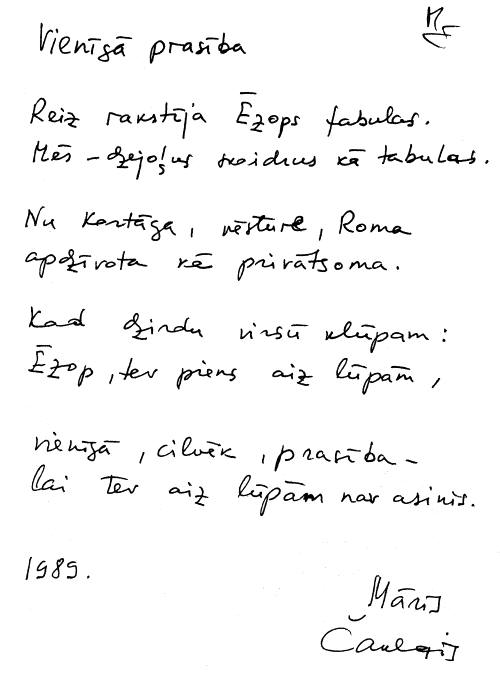 Vienīgā prasība
Reiz rakstīja Ēzops fabulas.
Mēs – dzejoļus skaidrus kā tabulas.
Nu Kartāga, vēsture, Roma
apdzīvota kā privātsoma.
Kad dzirdu virsū klūpam:
Ēzop, tev piens aiz lūpām,
vienīgā, cilvēk, prasība –
lai tev aiz lūpām nav asinis.
1989.
Māris
Čaklais